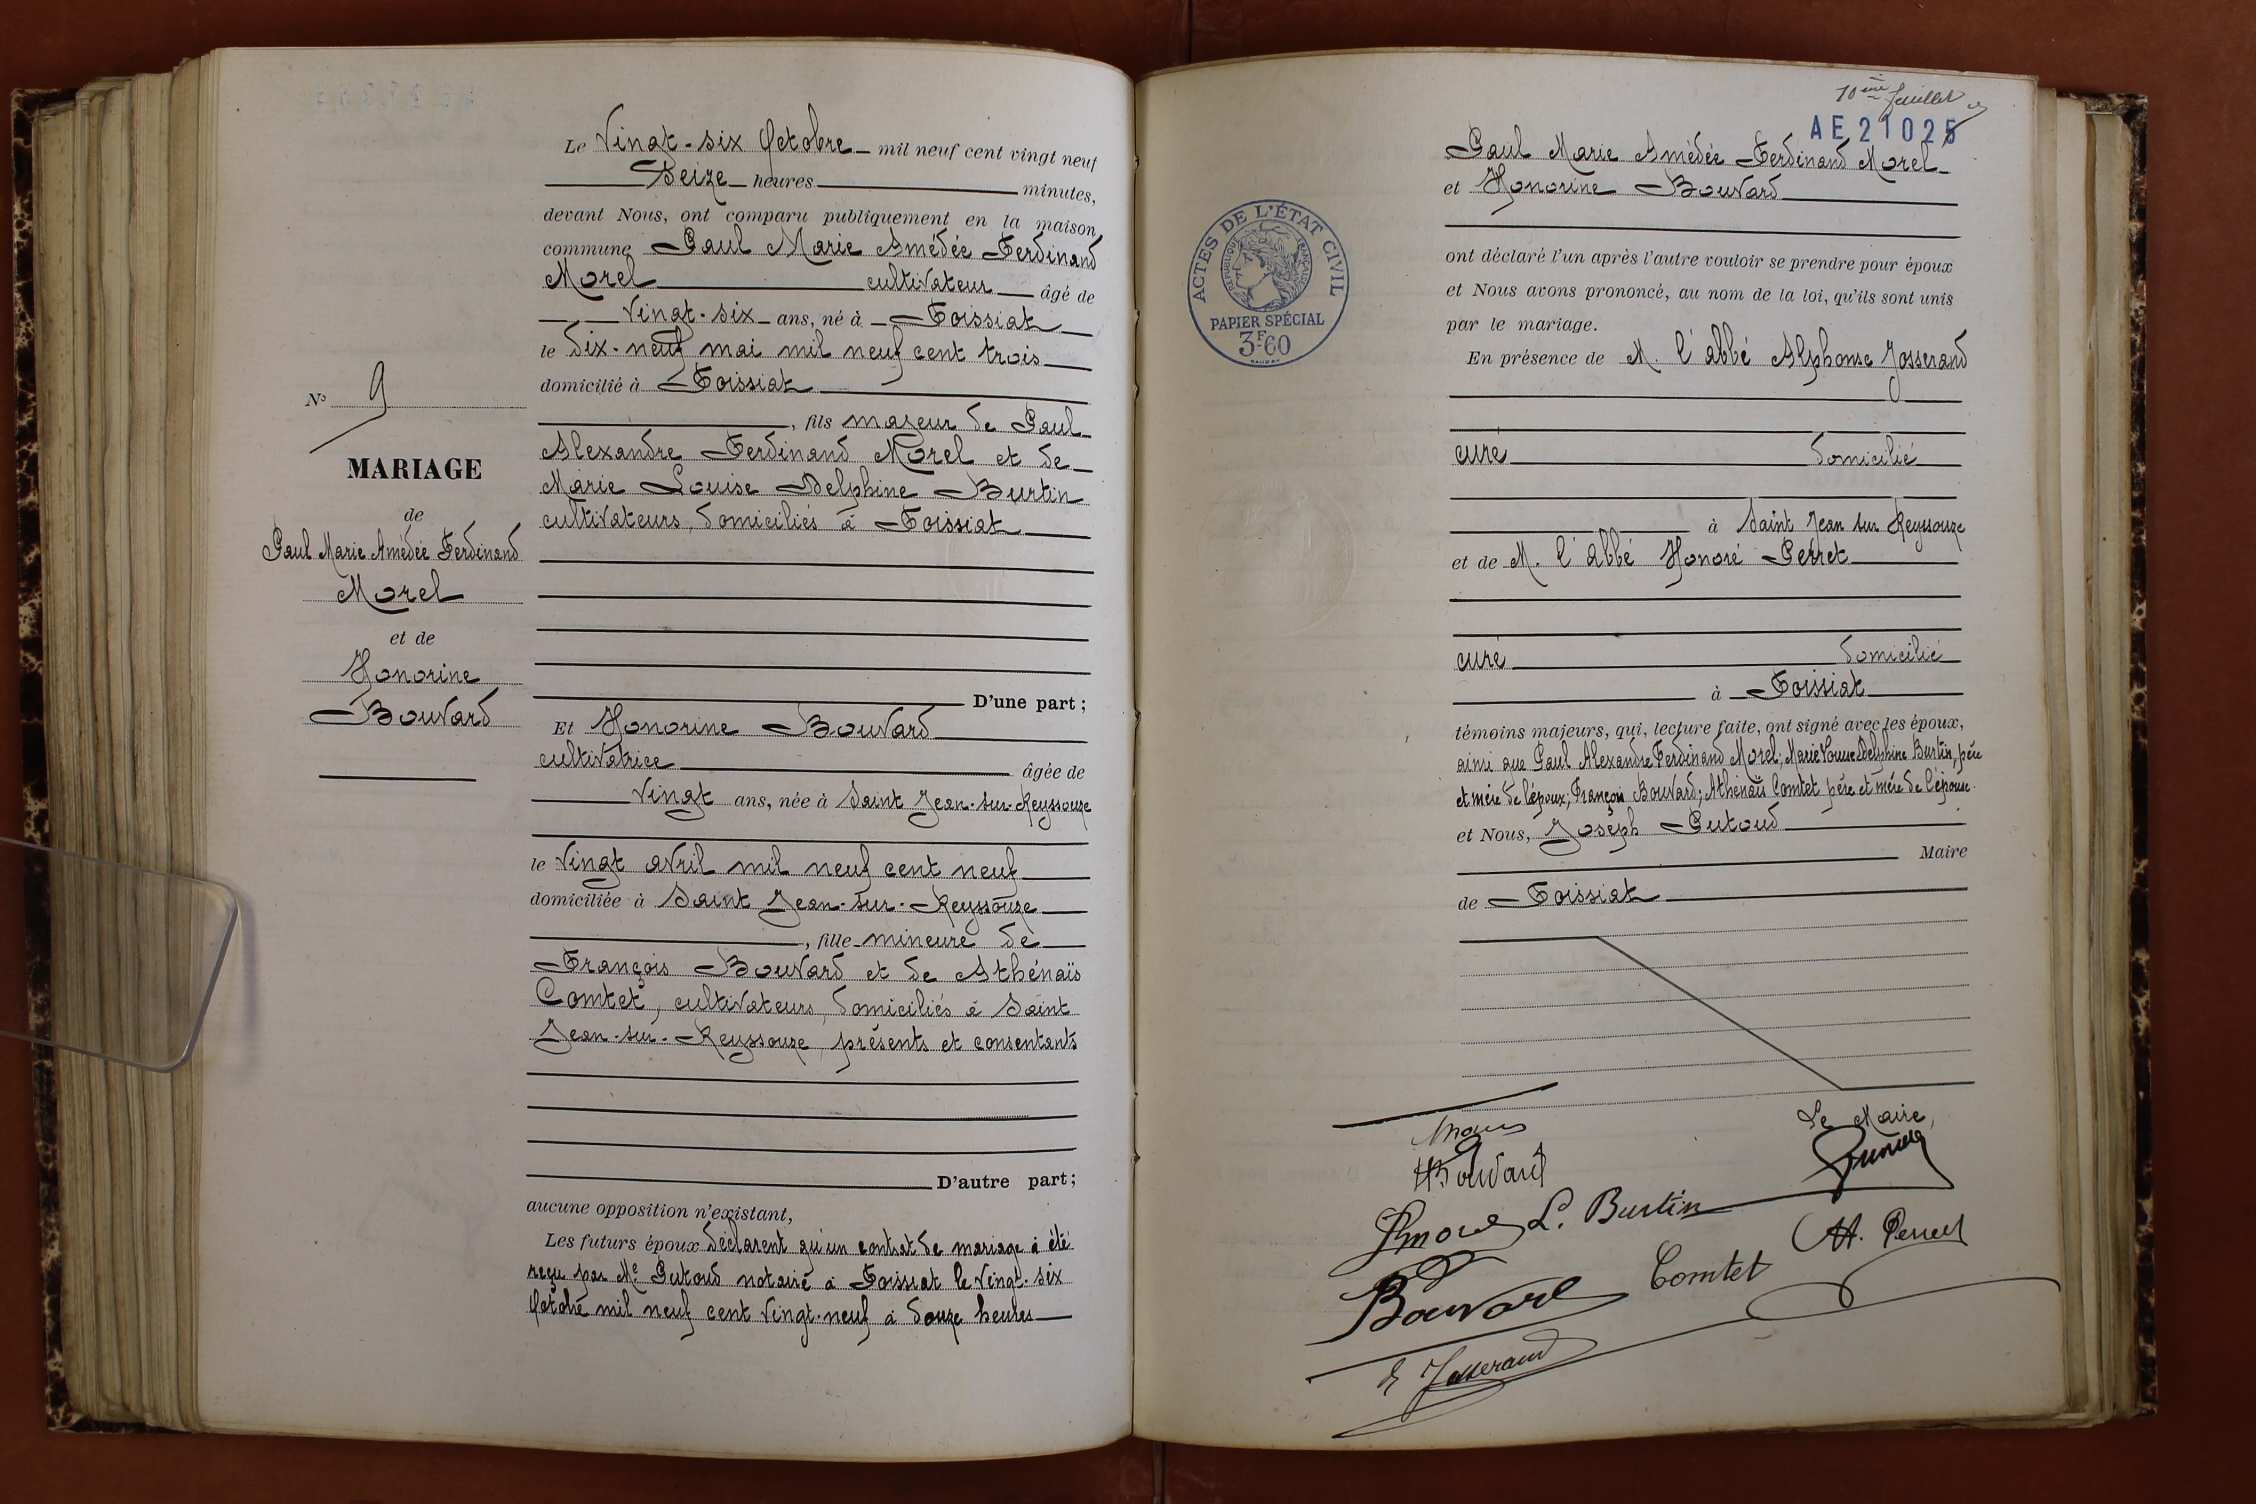 Le Vingt-six Octobre mil neuf cent vingt neuf
Seize heures minutes,
devant Nous, ont comparu publiquement en la maison
commune Paul Marie Amédée Ferdinand
Morel cultivateur âgé de
Vingt-six ans, né à Foissiat
le dix-neuf mai mil neuf cent trois
domicilié à Foissiat
, fils majeur de Paul
Alexandre Ferdinand Morel et de
Marie Louise Delphine Burtin
cultivateurs, domiciliés à Foissiat
D'une part ;
Et Honorine Bouvard
cultivatrice âgée de
Vingt ans, née à Saint Jean-sur-Reyssouze
le Vingt avril mil neuf cent neuf
domiciliée à Saint Jean-sur-Reyssouze
, fille mineure de
François Bouvard et de Athénaïs
Comtet, cultivateurs, domiciliés à Saint
Jean-sur-Reyssouze, présents et consentants
D'autre part ;
aucune opposition n'existant,
Les futurs époux déclarent qu'un contrat de mariage a été
reçu par Me Putoud notaire à Foissiat le Vingt-six
Octobre mil neuf cent Vingt-neuf à douze heures
No 9
MARIAGE
de
Paul Marie Amédée Ferdinand
Morel
et de
Honorine
Bouvard
10ème feuillet
AE21025
Paul Marie Amédée Ferdinand Morel
et Honorine Bouvard
ont déclaré l'un après l'autre vouloir se prendre pour époux
et Nous avons prononcé, au nom de la loi, qu'ils sont unis
par le mariage.
En présence de M. l'abbé Alphonse Josserand
curé domicilié
à Saint Jean sur Reyssouze
et de M. l'Abbé Honoré Perret
curé domicilié
à Foissiat
témoins majeurs, qui, lecture faite, ont signé avec les époux,
ainsi que Paul Alexandre Ferdinand Morel; Marie Louise Delphine Burtin, père
et mère de l'époux; François Bouvard; Athénaïs Comtet père et mère de l'épouse.
et Nous, Joseph Putoud
Maire
de Foissiat
ACTES DE L'ÉTAT CIVIL
RÉPUBLIQUE FRANÇAISE
PAPIER SPÉCIAL
3F60
Le Maire,
H Bouvard
L. Burtin
H. Perret
Comtet
Bouvard
Josserand